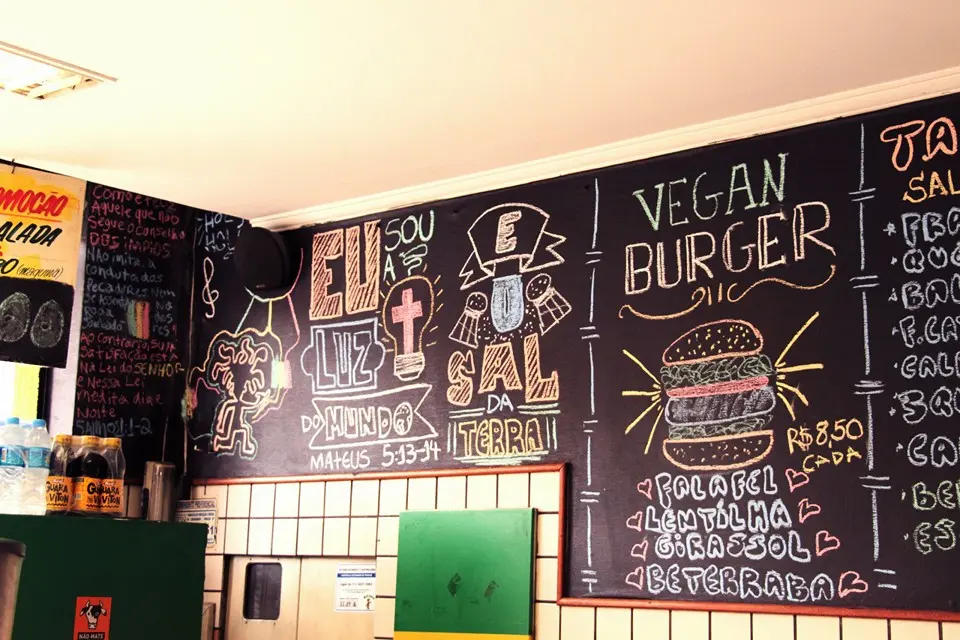 OMOÇÃO
ALADA
Como é feliz
Aquele que não
Segue o Conselho
DOS ÍMPIOS
Não imita a
conduta dos
Pecadores Nem
se assenta
Ao contrário, sua
satisfação está
Na Lei do SENHOR
e Nessa Lei
medita dia e
Noite
Salmos 1:1-2
EU SOU
A
LUZ
DO MUNDO
MATEUS 5:13-14
E
O
SAL
DA
TERRA
VEGAN
BURGER
R$8,50
CADA
FALAFEL
LENTILHA
GIRASSOL
BETERRABA
TA
SAL
FRA
QUE
F.CA
CA
BE
ES
GUARA
VITON
GUARA
VITON
NÃO MATE